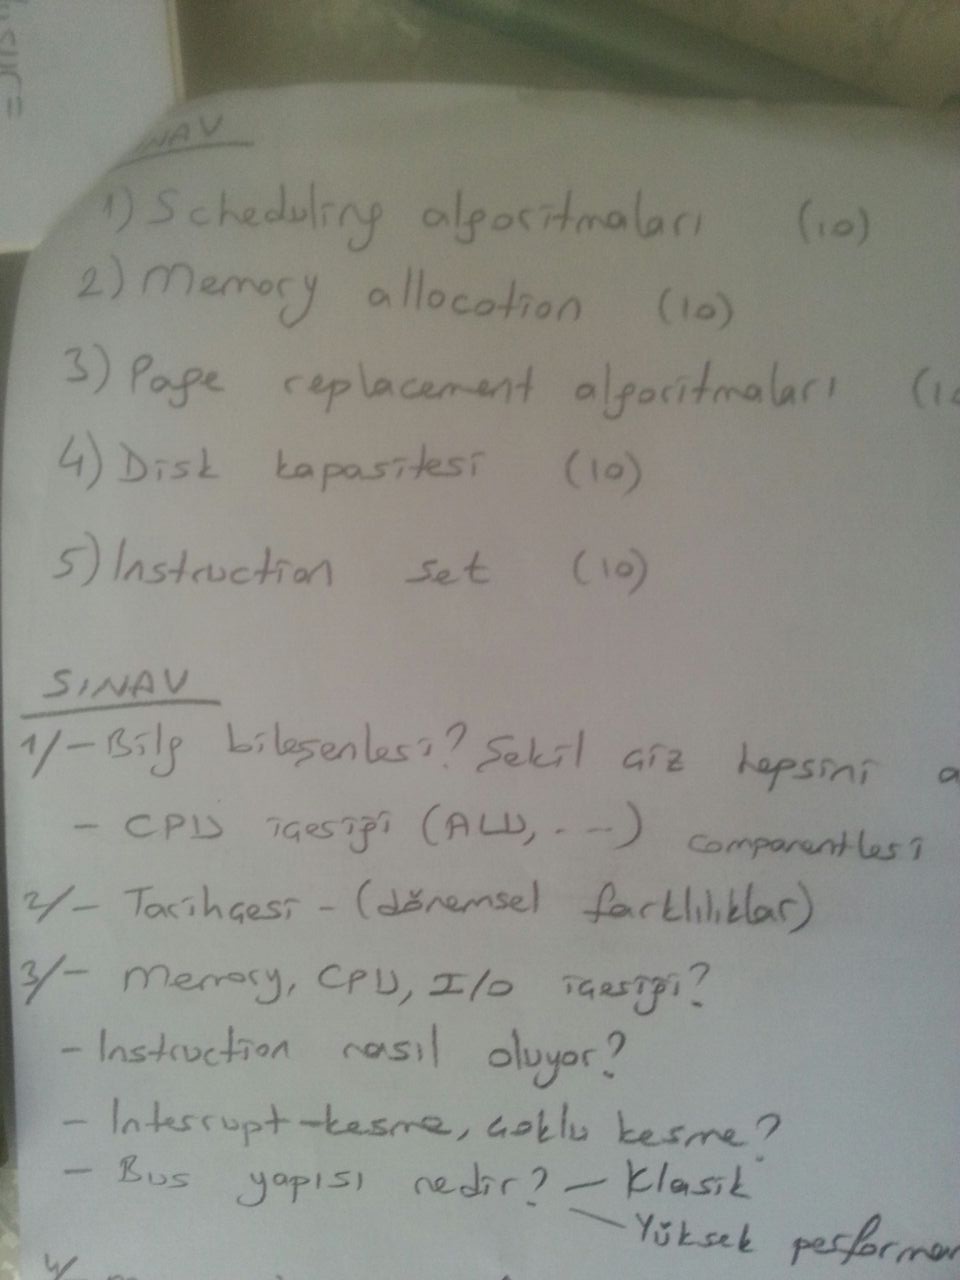 SINAV
1) Scheduling algoritmaları (10)
2) Memory allocation (10)
3) Page replacement algoritmaları (10
4) Disk kapasitesi (10)
5) Instruction set (10)
SINAV
1/- Bilg bileşenleri? Şekil çiz hepsini
- CPU içeriği (ALU, ...) componentleri
2/- Tarihçesi - (dönemsel farklılıklar)
3/- Memory, CPU, I/O içeriği?
- Instruction nasıl oluyor?
- Interrupt-kesme, çoklu kesme?
- Bus yapısı nedir? - Klasik
- Yüksek performan
4/